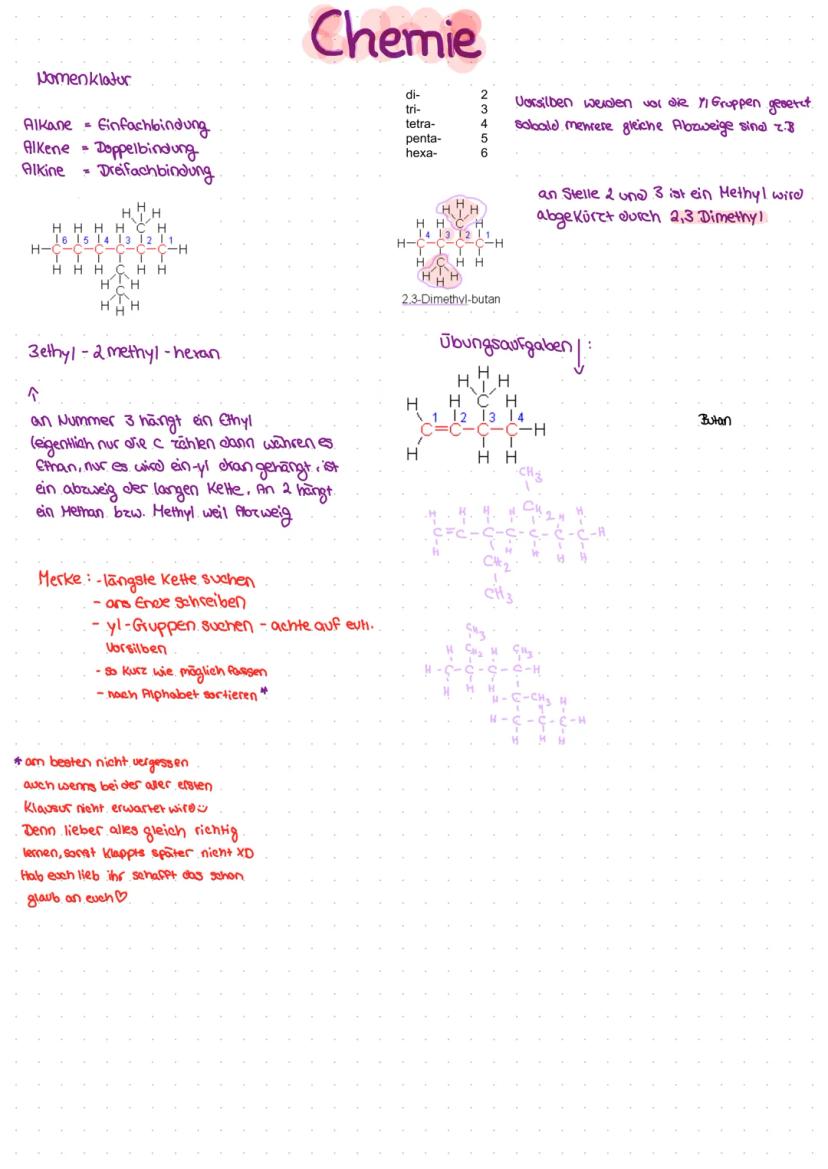 Chemie
Nomenklatur
Alkane = Einfachbindung
Alkene = Doppelbindung
Alkine = Dreifachbindung
di- 2
tri- 3
tetra- 4
penta- 5
hexa- 6
Vorsilben werden vor die yl Gruppen gesetzt
sobald mehrere gleiche Abzweige sind z.B
an Stelle 2 und 3 ist ein Methyl wird
abgekürzt durch 2,3 Dimethyl
H H H
C
H H H H H H
H-C-C-C-C-C-C-H
6 5 4 3 2 1
H H H H H
C
H H
C
H H H
H H H
C
H H H
H-C-C-C-C-H
4 3 2 1
H H H
C
H H H
2,3-Dimethyl-butan
3ethyl - 2methyl - hexan
↑
an Nummer 3 hängt ein Ethyl
(eigentlich nur die C zählen dann währen es
Ethan, nur es wird ein-yl dran gehängt, ist
ein abzweig der langen Kette. An 2 hängt
ein Methan bzw. Methyl weil Abzweig
Merke : - längste Kette suchen
- ans Ende schreiben
- yl-Gruppen suchen - achte auf evtl.
Vorsilben
- so kurz wie möglich fassen
- nach Alphabet sortieren *
* am besten nicht vergessen
auch wenns bei der aller ersten
Klausur nicht erwartet wird
Denn lieber alles gleich richtig
lernen, sonst klappts später nicht XD
Hab euch lieb ihr schafft das schon
glaub an euch♡
Übungsaufgaben ↓ :
H
H H
H H C H
1 2 3 4
C=C-C-C-H
H H H
Butan
CH3
H H H H CH2 H H
C=C-C-C-C-C-C-H
H H H H H
CH2
CH3
CH3
H CH2 H CH3
H-C-C-C-C-H
H H H
H-C-CH3 H
H H
H-C-C-C-H
H H H